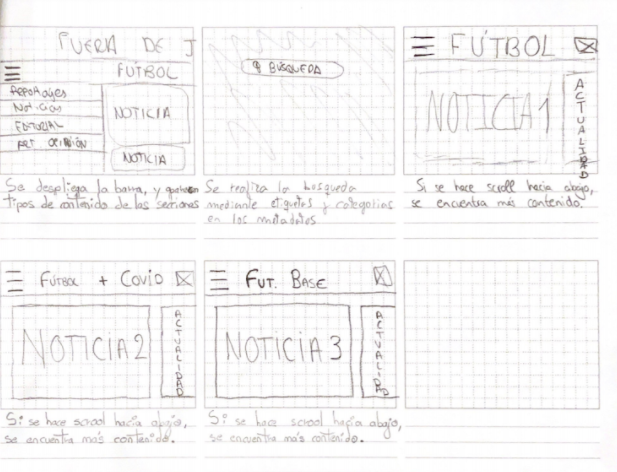 FUERA DE J
FUTBOL
Reportajes
Noticias
EDITORIAL
ART OPINIÓN
NOTICIA
NOTICIA
Se despliega la barra, y
tipos de contenido de las secciones
BÚSQUEDA
Se realiza la búsqueda
mediante etiquetas y categorías
en los metadatos
FÚTBOL
NOTICIA 1
ACTUALIDAD
Si se hace scroll hacia abajo,
se encuentra más contenido.
FÚTBOL + COVID
NOTICIA 2
ACTUALIDAD
Si se hace scrool hacía abajo,
se encuentra más contenido.
FUT. BASE
NOTICIA 3
ACTUALIDAD
Si se hace scrool hacía abajo,
se encuentra más contenido.